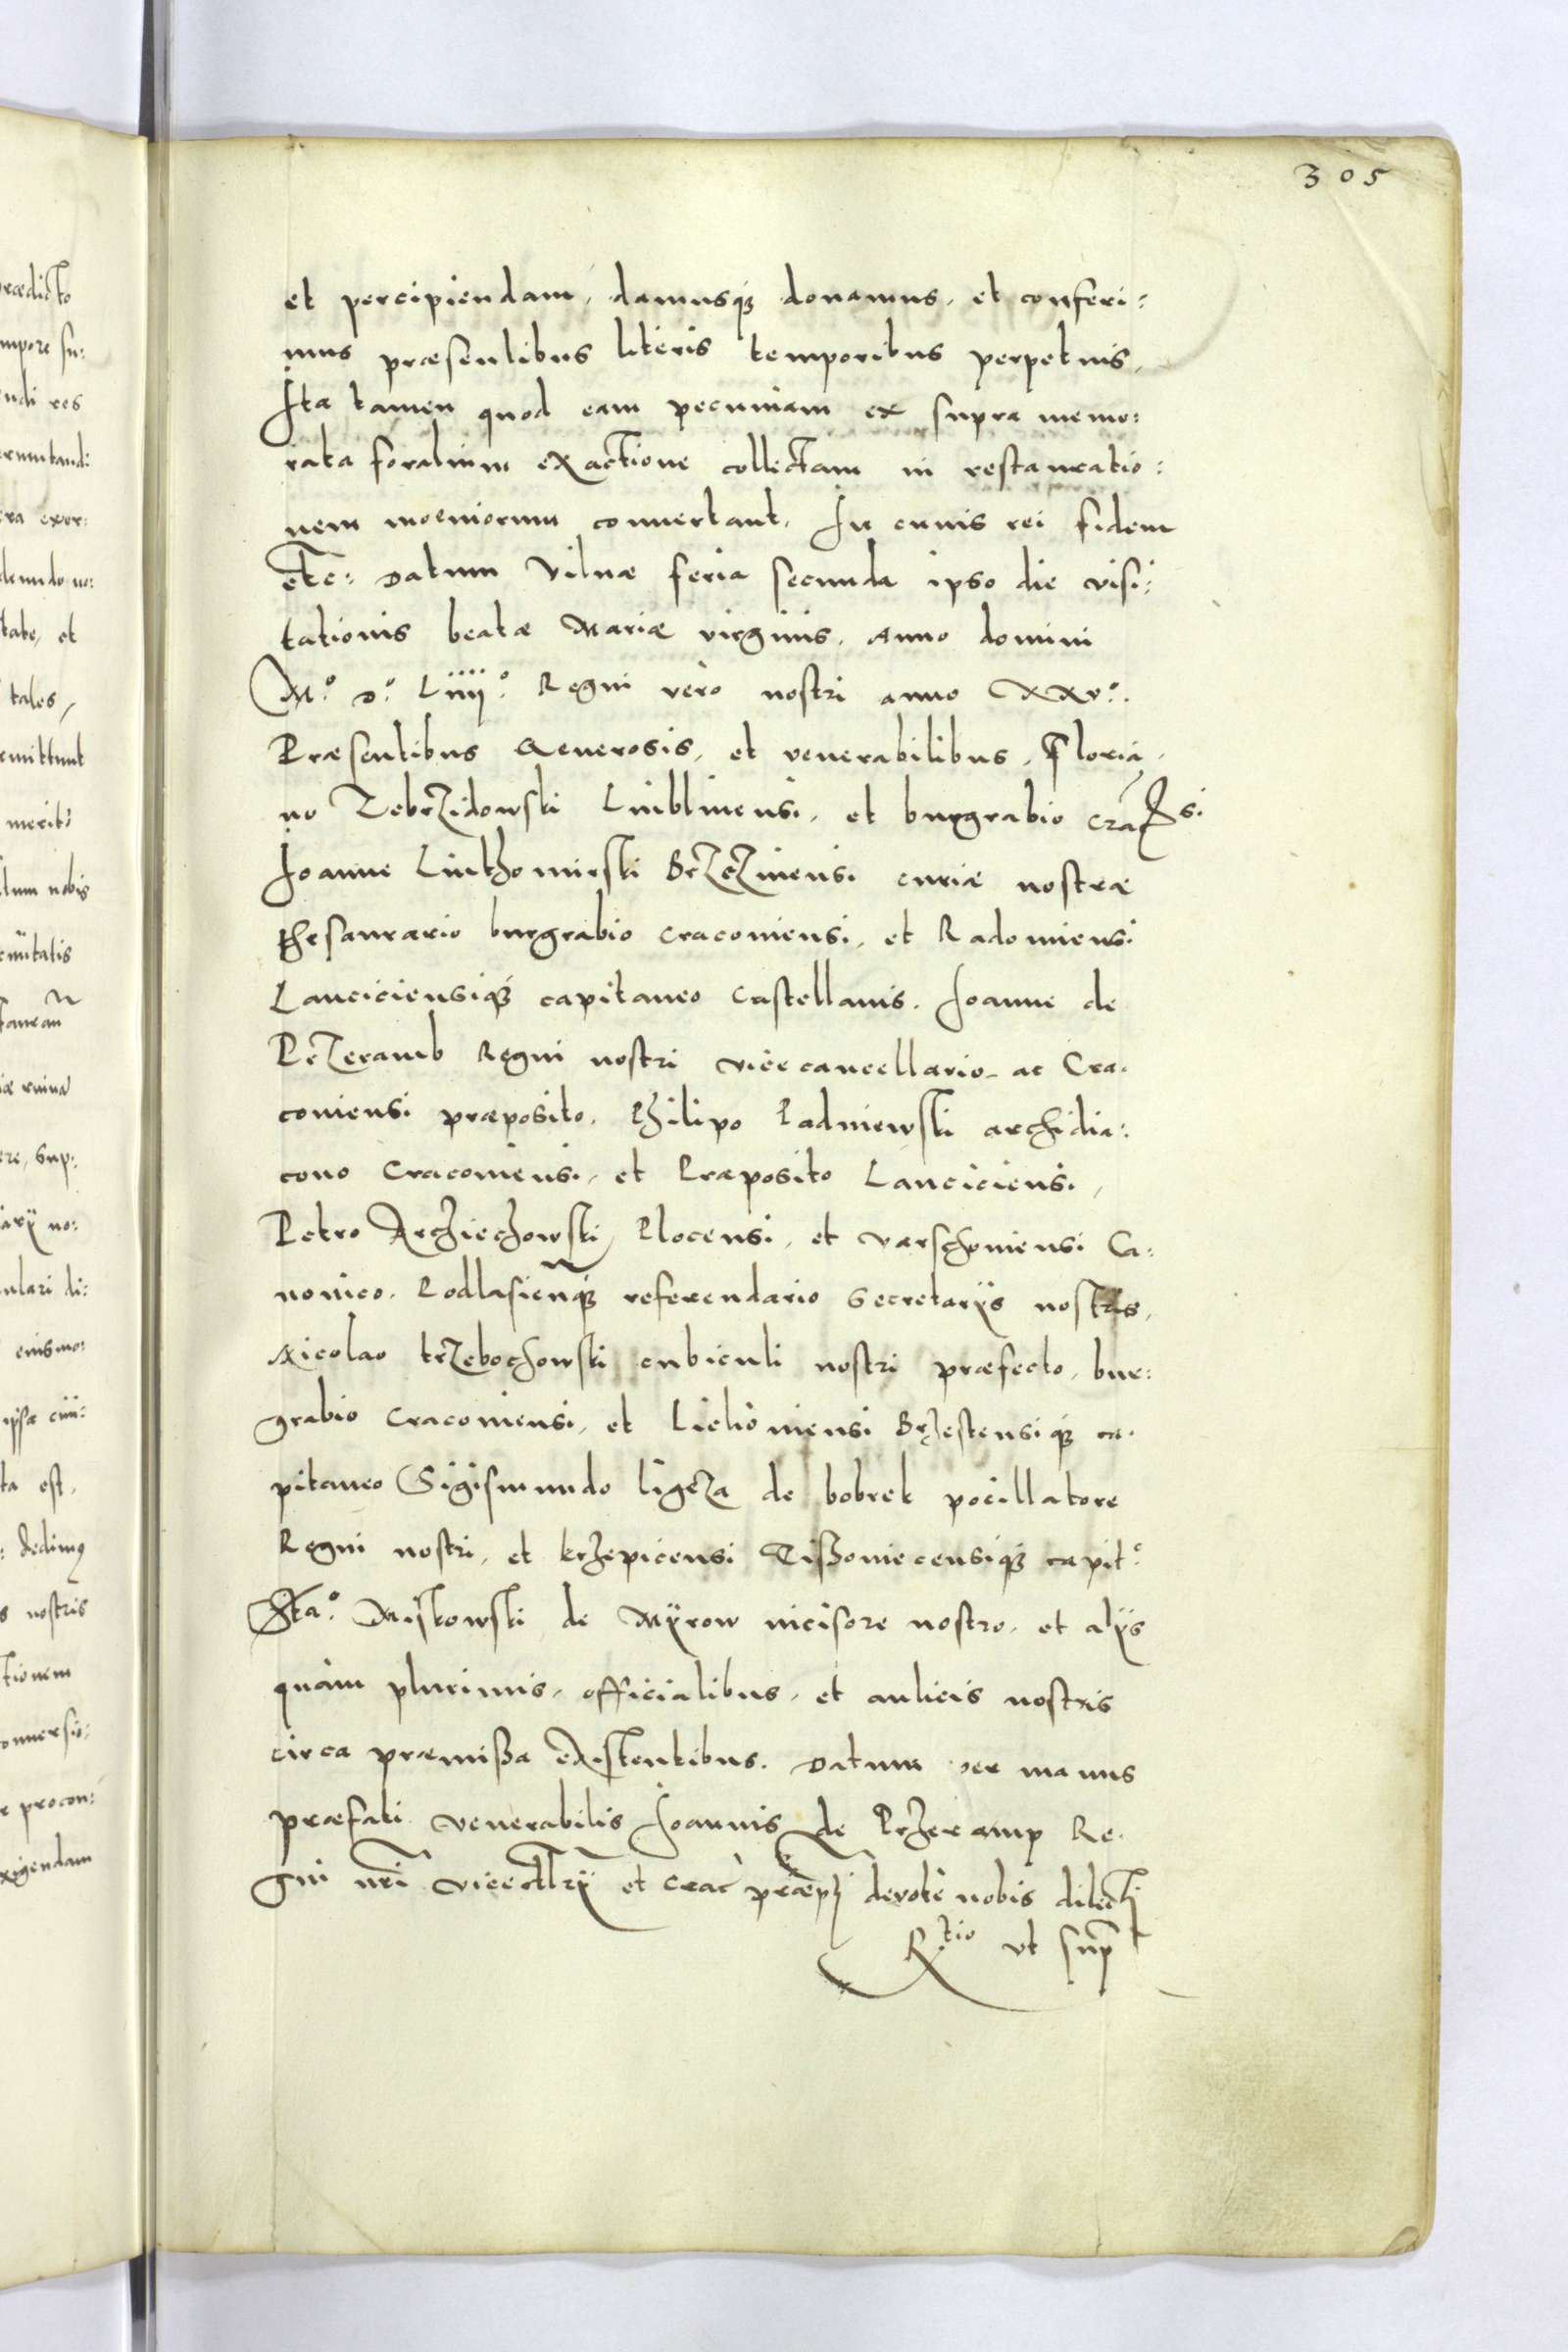 305
et percipiendam, damusq́ꝫ donamus, et conferi:
mus præsentibus literis temporibus perpetuis,
Ita tamen quod eam pecuniam ex supra memo:
rata foralium exactione collectam in restauratio:
nem moeniorum conuertant. In cuius rei fidem
etc: Datum Vilnæ feria secunda ipso die visi:
tationis beatæ Mariæ virginis. Anno domini
M.º D.º Liiij.º Regni verò nostri anno XXvº.
Præsentibus Generosis, et venerabilibus, Floria,
no Zebrzidowski Lublinensi, et burgrabio Cracẽsi
Joanne Luthomirski Brzezinensi curiæ nostræ
thesaurario burgrabio Cracouiensi, et Radomiensi
Lanciciensiq́ꝫ capitaneo Castellanis. Joanne de
Przeramb Regni nostri vicecancellario ac Cra:
couiensi præposito, Philipo Padniewski archidia:
cono Cracouiensi, et Præposito Lanciciensi,
Petro Arciechowski Plocensi, et Varschouiensi Ca:
nonico, Podlasieñq́ꝫ referendario Secretarijs nostris,
Nicolao trzebochowski cubiculi nostri præfecto, bur:
grabio Cracouiensi, et Lielioniensi Brzestensiq́ꝫ ca:
pitaneo Sigismundo ligęza de bobrek pocillatore
Regni nostri, et krzepicensi Tissouiecensiq́ꝫ capit.º
Sta.º Miskowski de Myrow incisore nostro, et alijs
quàm plurimis, officialibus, et aulicis nostris
circa præmissa existentibus. Datum per manus
præfati venerabilis Joannis de Przeramp Re:
gni nr̃i vicecllr̃ij et Crac præpti deuotè nobis dilecti
Rtio vt sup